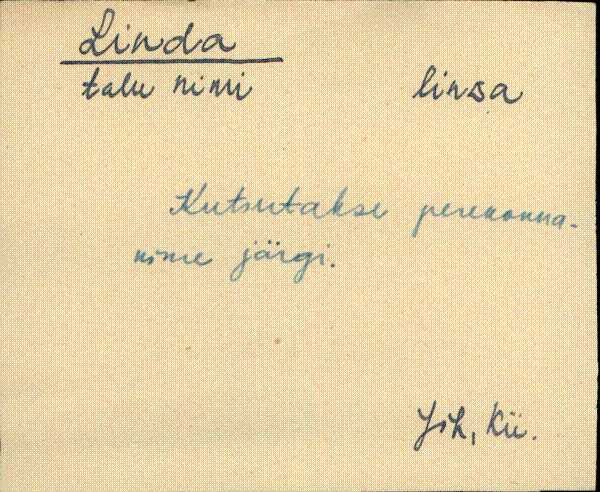 Linda
talu nimi linsa
Kutsutakse perekonna-
nime järgi.
Jõh, Kii.